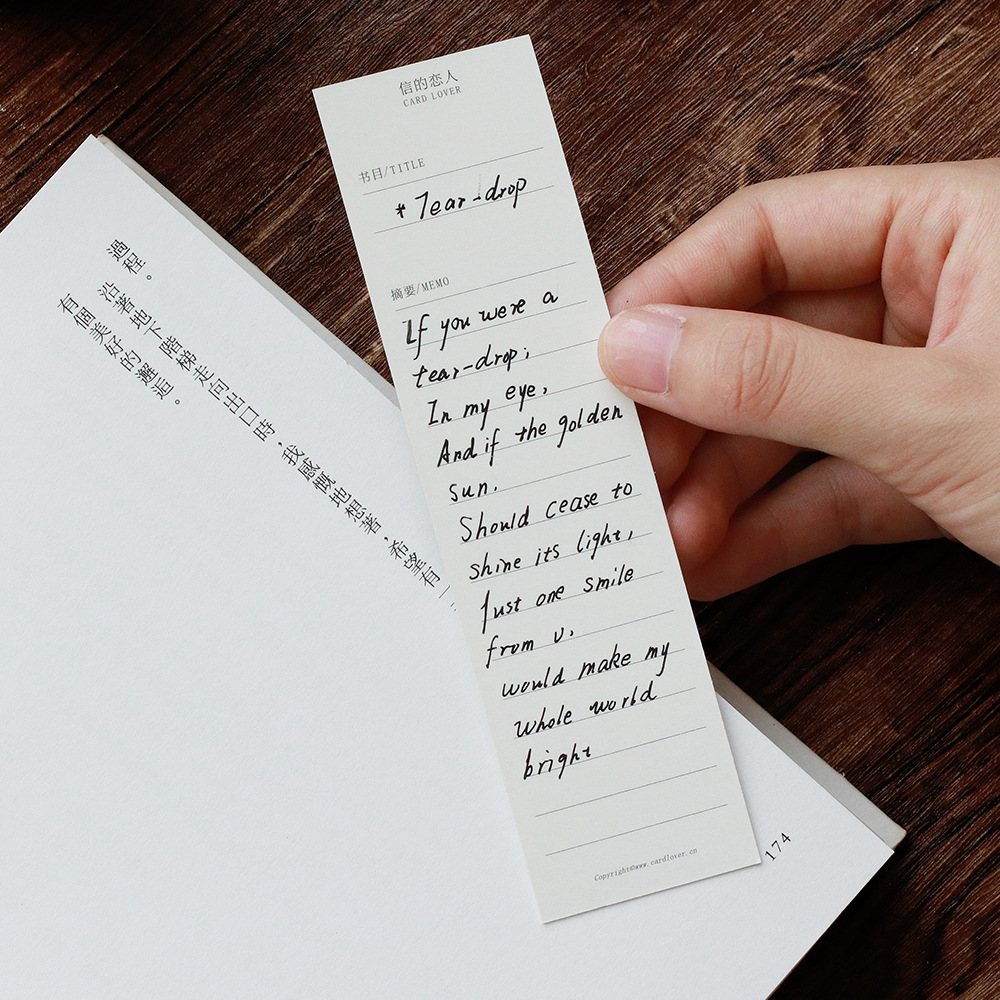 信的恋人
CARD LOVER
书目/TITLE
* Tear-drop
摘要/MEMO
If you were a
tear-drop;
In my eye,
And if the golden
sun.
Should cease to
shine its light,
Just one smile
from u,
would make my
whole world
bright
Copyright©www.cardlover.cn
過程。
沿著地下階梯走向出口時，我感慨地想著，希望有一
有個美好的邂逅。
174